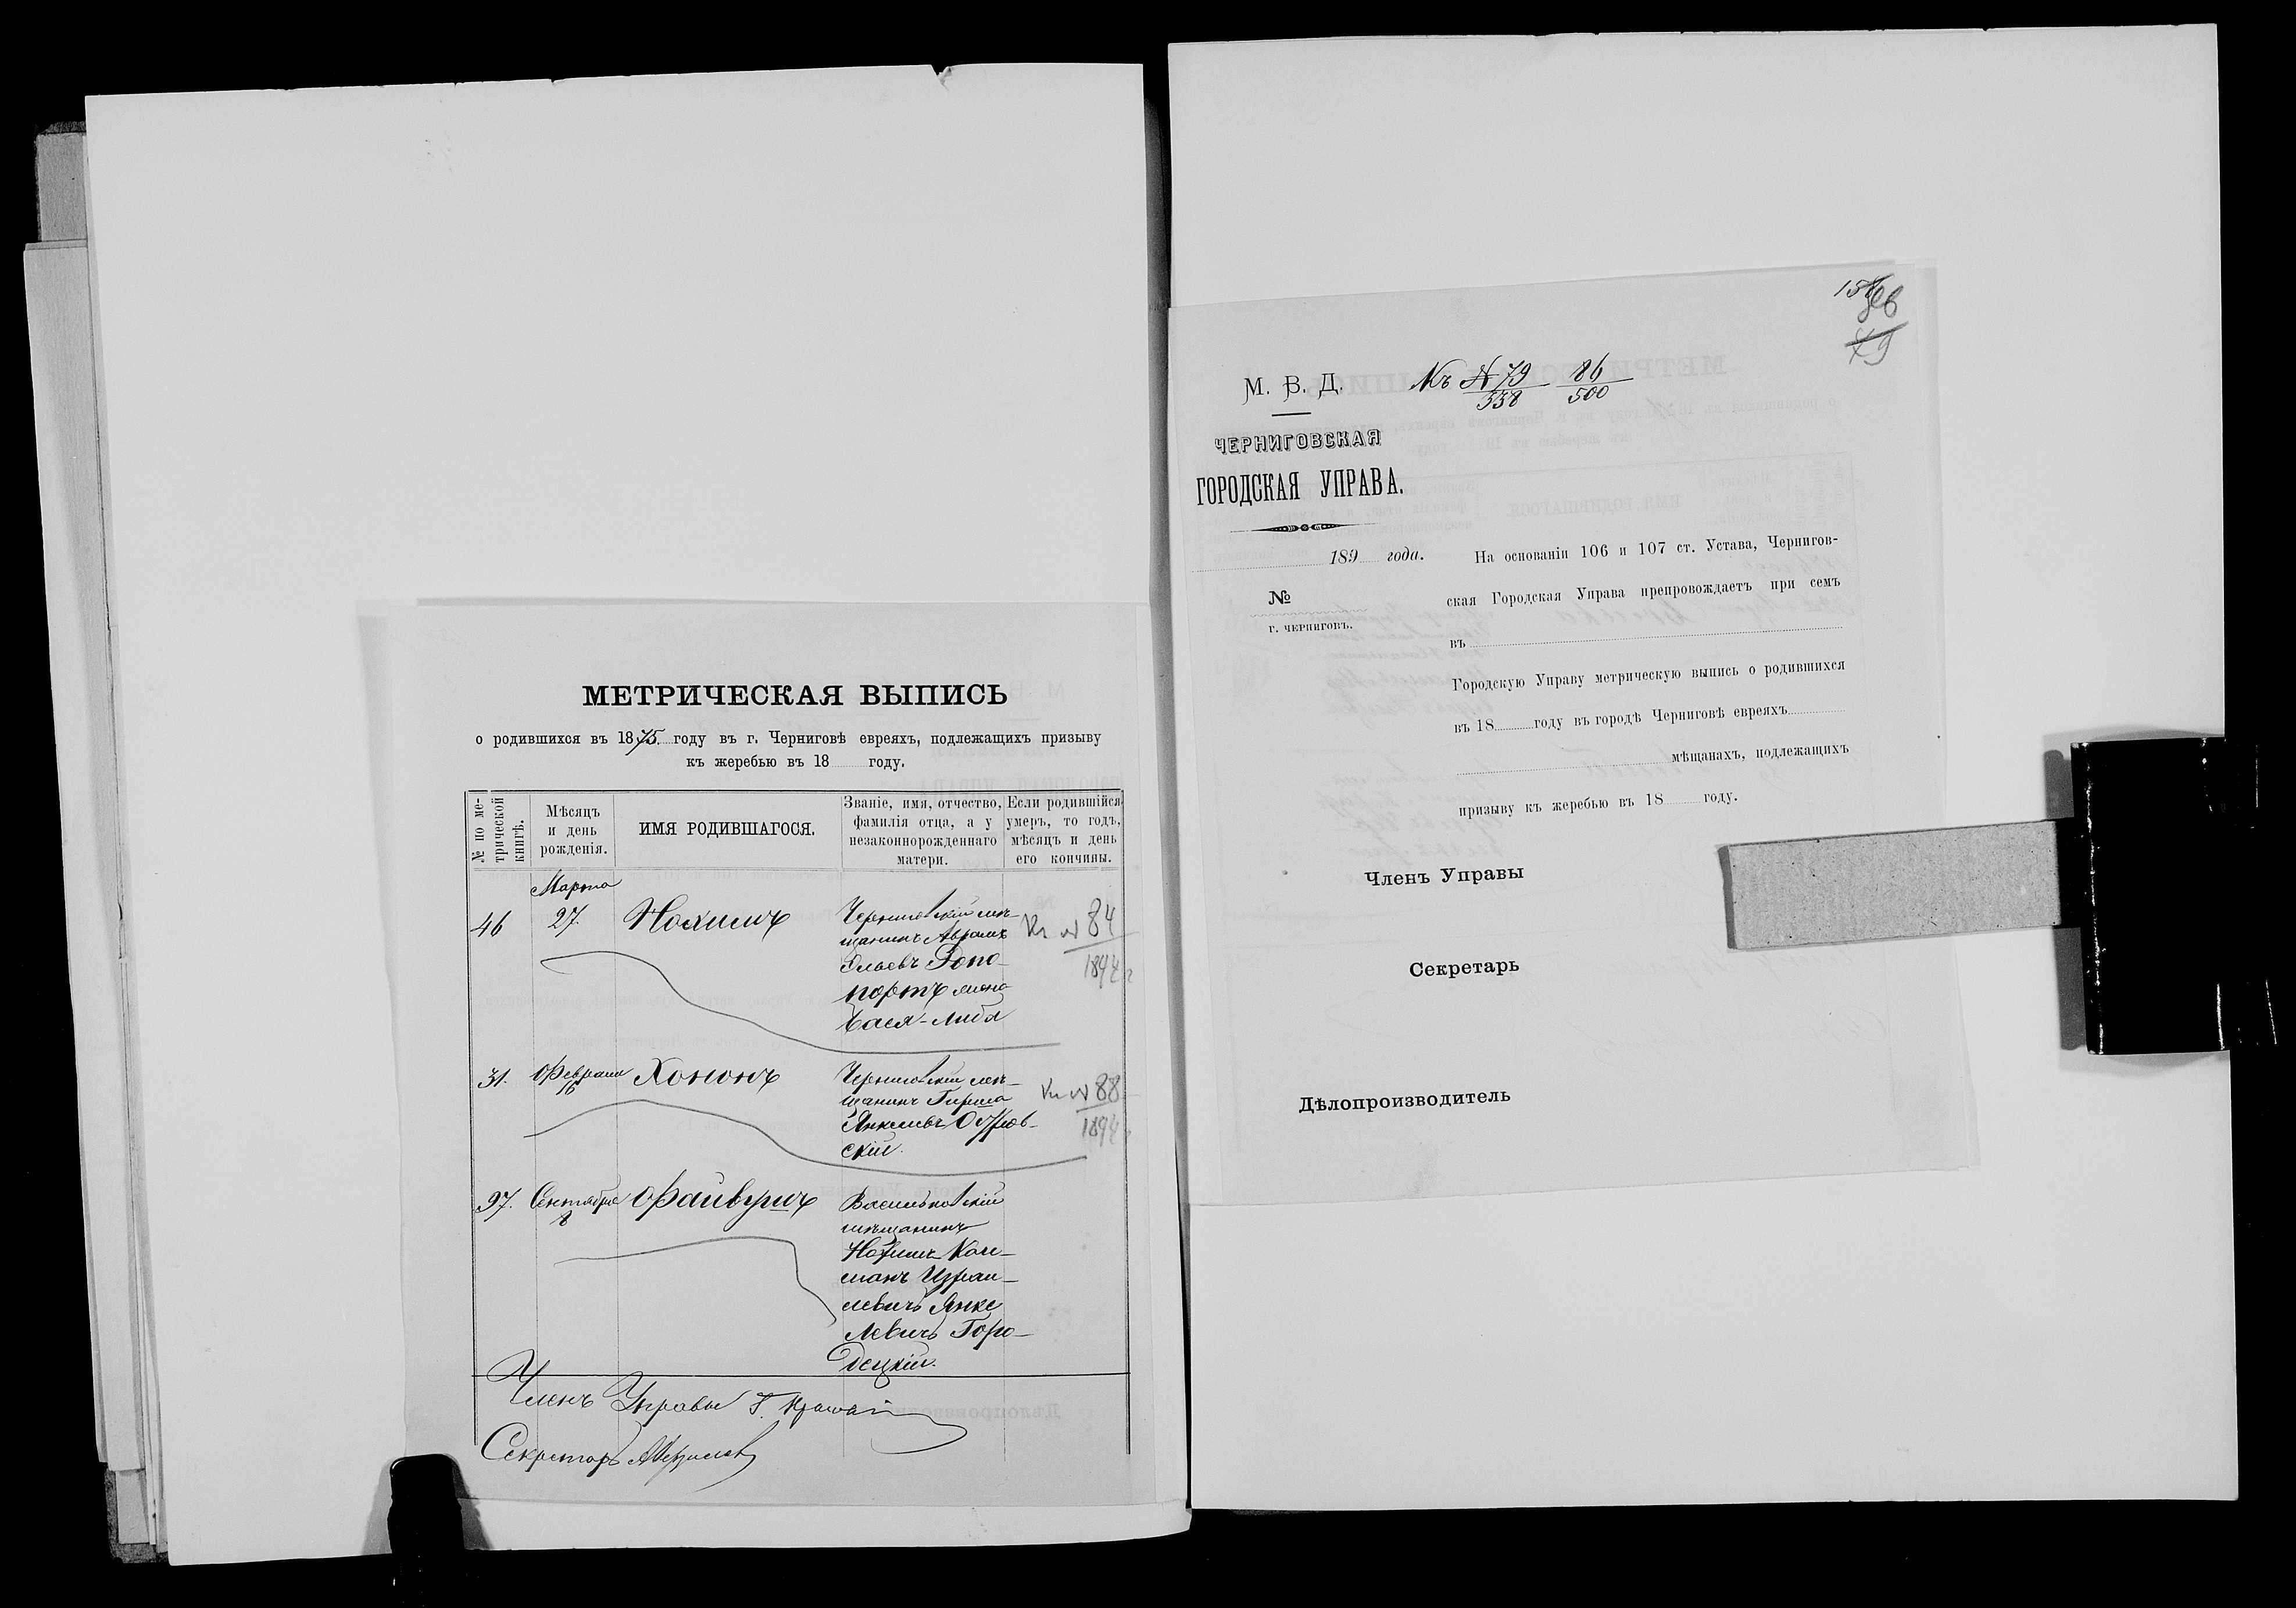 МЕТРИЧЕСКАЯ ВЫПИСЬ
о родившихся въ 1875 году въ г. Черниговѣ евреяхъ, подлежащихъ призыву
къ жеребью въ 18 году.
№ по метрической книгѣ.
Мѣсяцъ и день рожденія.
ИМЯ РОДИВШАГОСЯ.
Званіе, имя, отчество, фамилія отца, а у незаконнорожденнаго матери.
Если родившійся умеръ, то годъ, мѣсяцъ и день его кончины.
Марта
46 27. Нохимъ Черниговскій мѣ-
щанинъ Абрамъ
Рапо-
портъ жена
Бася-Либа
№ 84
31. Февраля 16 Хононъ Черниговскій мѣ-
щанинъ Гирша
Янкелевъ Остров-
скій.
№ 88
97. Сентября 8 Файвушъ Васильковскій
мѣщанинъ
Нохимъ Кал-
манъ Израи-
левичъ Янке
левичъ Горо-
децкій.
Членъ Управы
Секретарь
86
79
М. В. Д. Къ № 79/338 86/500
ЧЕРНИГОВСКАЯ
ГОРОДСКАЯ УПРАВА.
189 года.
№
г. ЧЕРНИГОВЪ.
На основаніи 106 и 107 ст. Устава, Чернигов-
ская Городская Управа препровождаетъ при семъ
въ
Городскую Управу метрическую выпись о родившихся
въ 18 году въ городѣ Черниговѣ евреяхъ
мѣщанахъ, подлежащихъ
призыву къ жеребью въ 18 году.
Членъ Управы
Секретарь
Дѣлопроизводитель